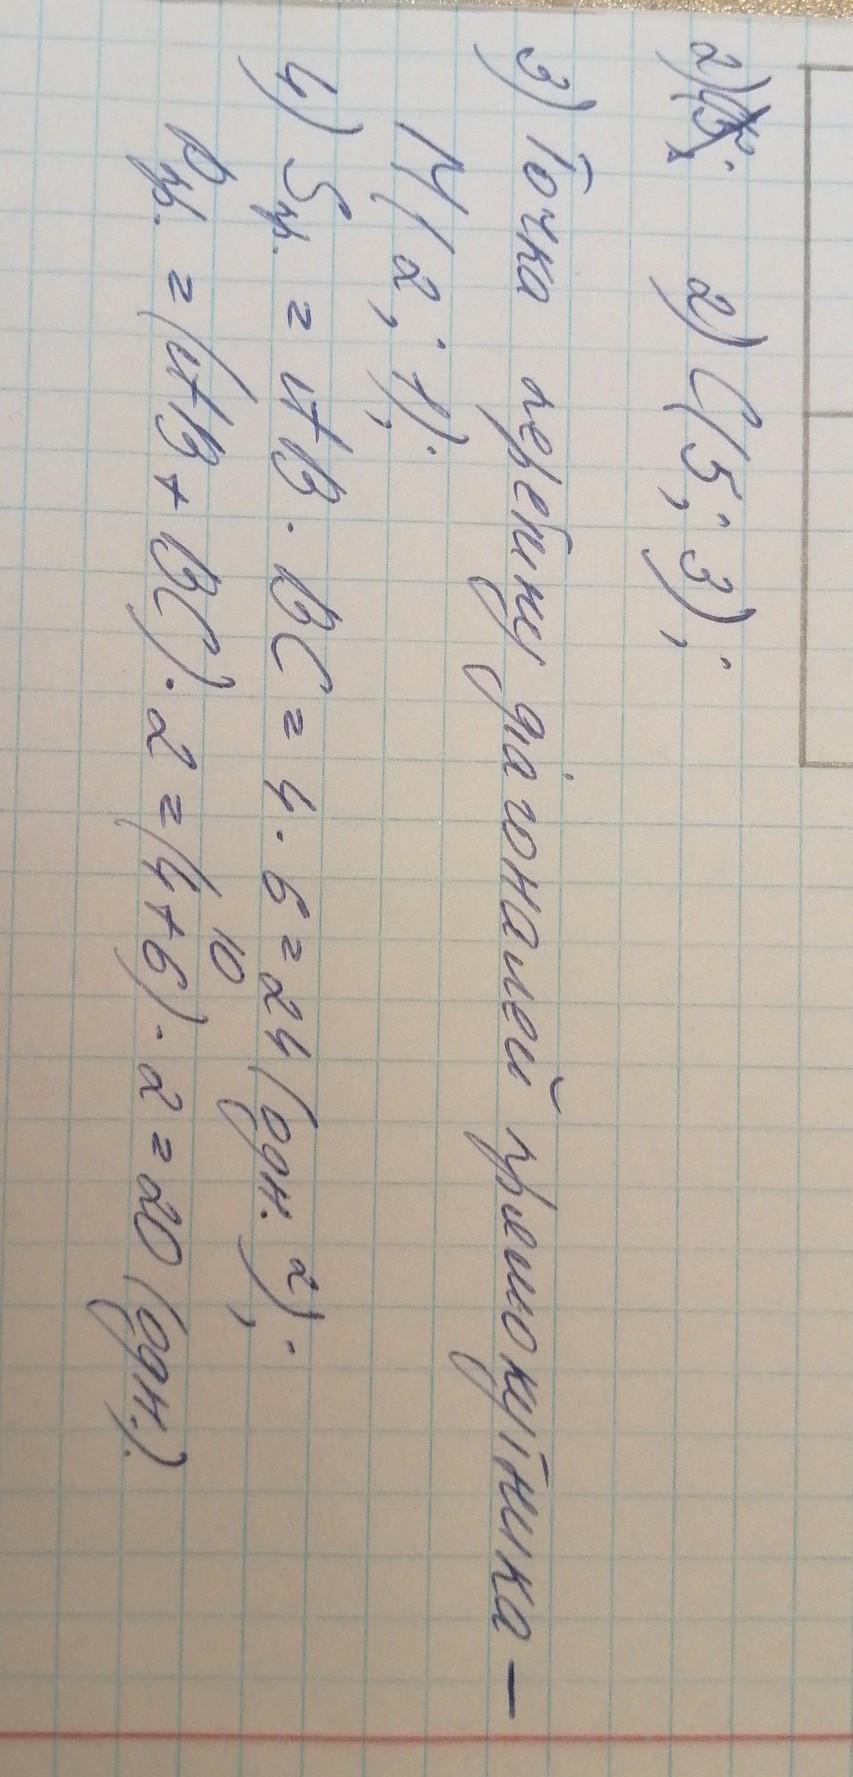 2) C(5; 3);
3) Точка перетину діагоналей прямокутника –
M(2; 1);
4) Sпр. = AB · BC = 4 · 6 = 24 (одн. ²);
10
Pпр. = (AB + BC) · 2 = (4+6) · 2 = 20 (одн.).